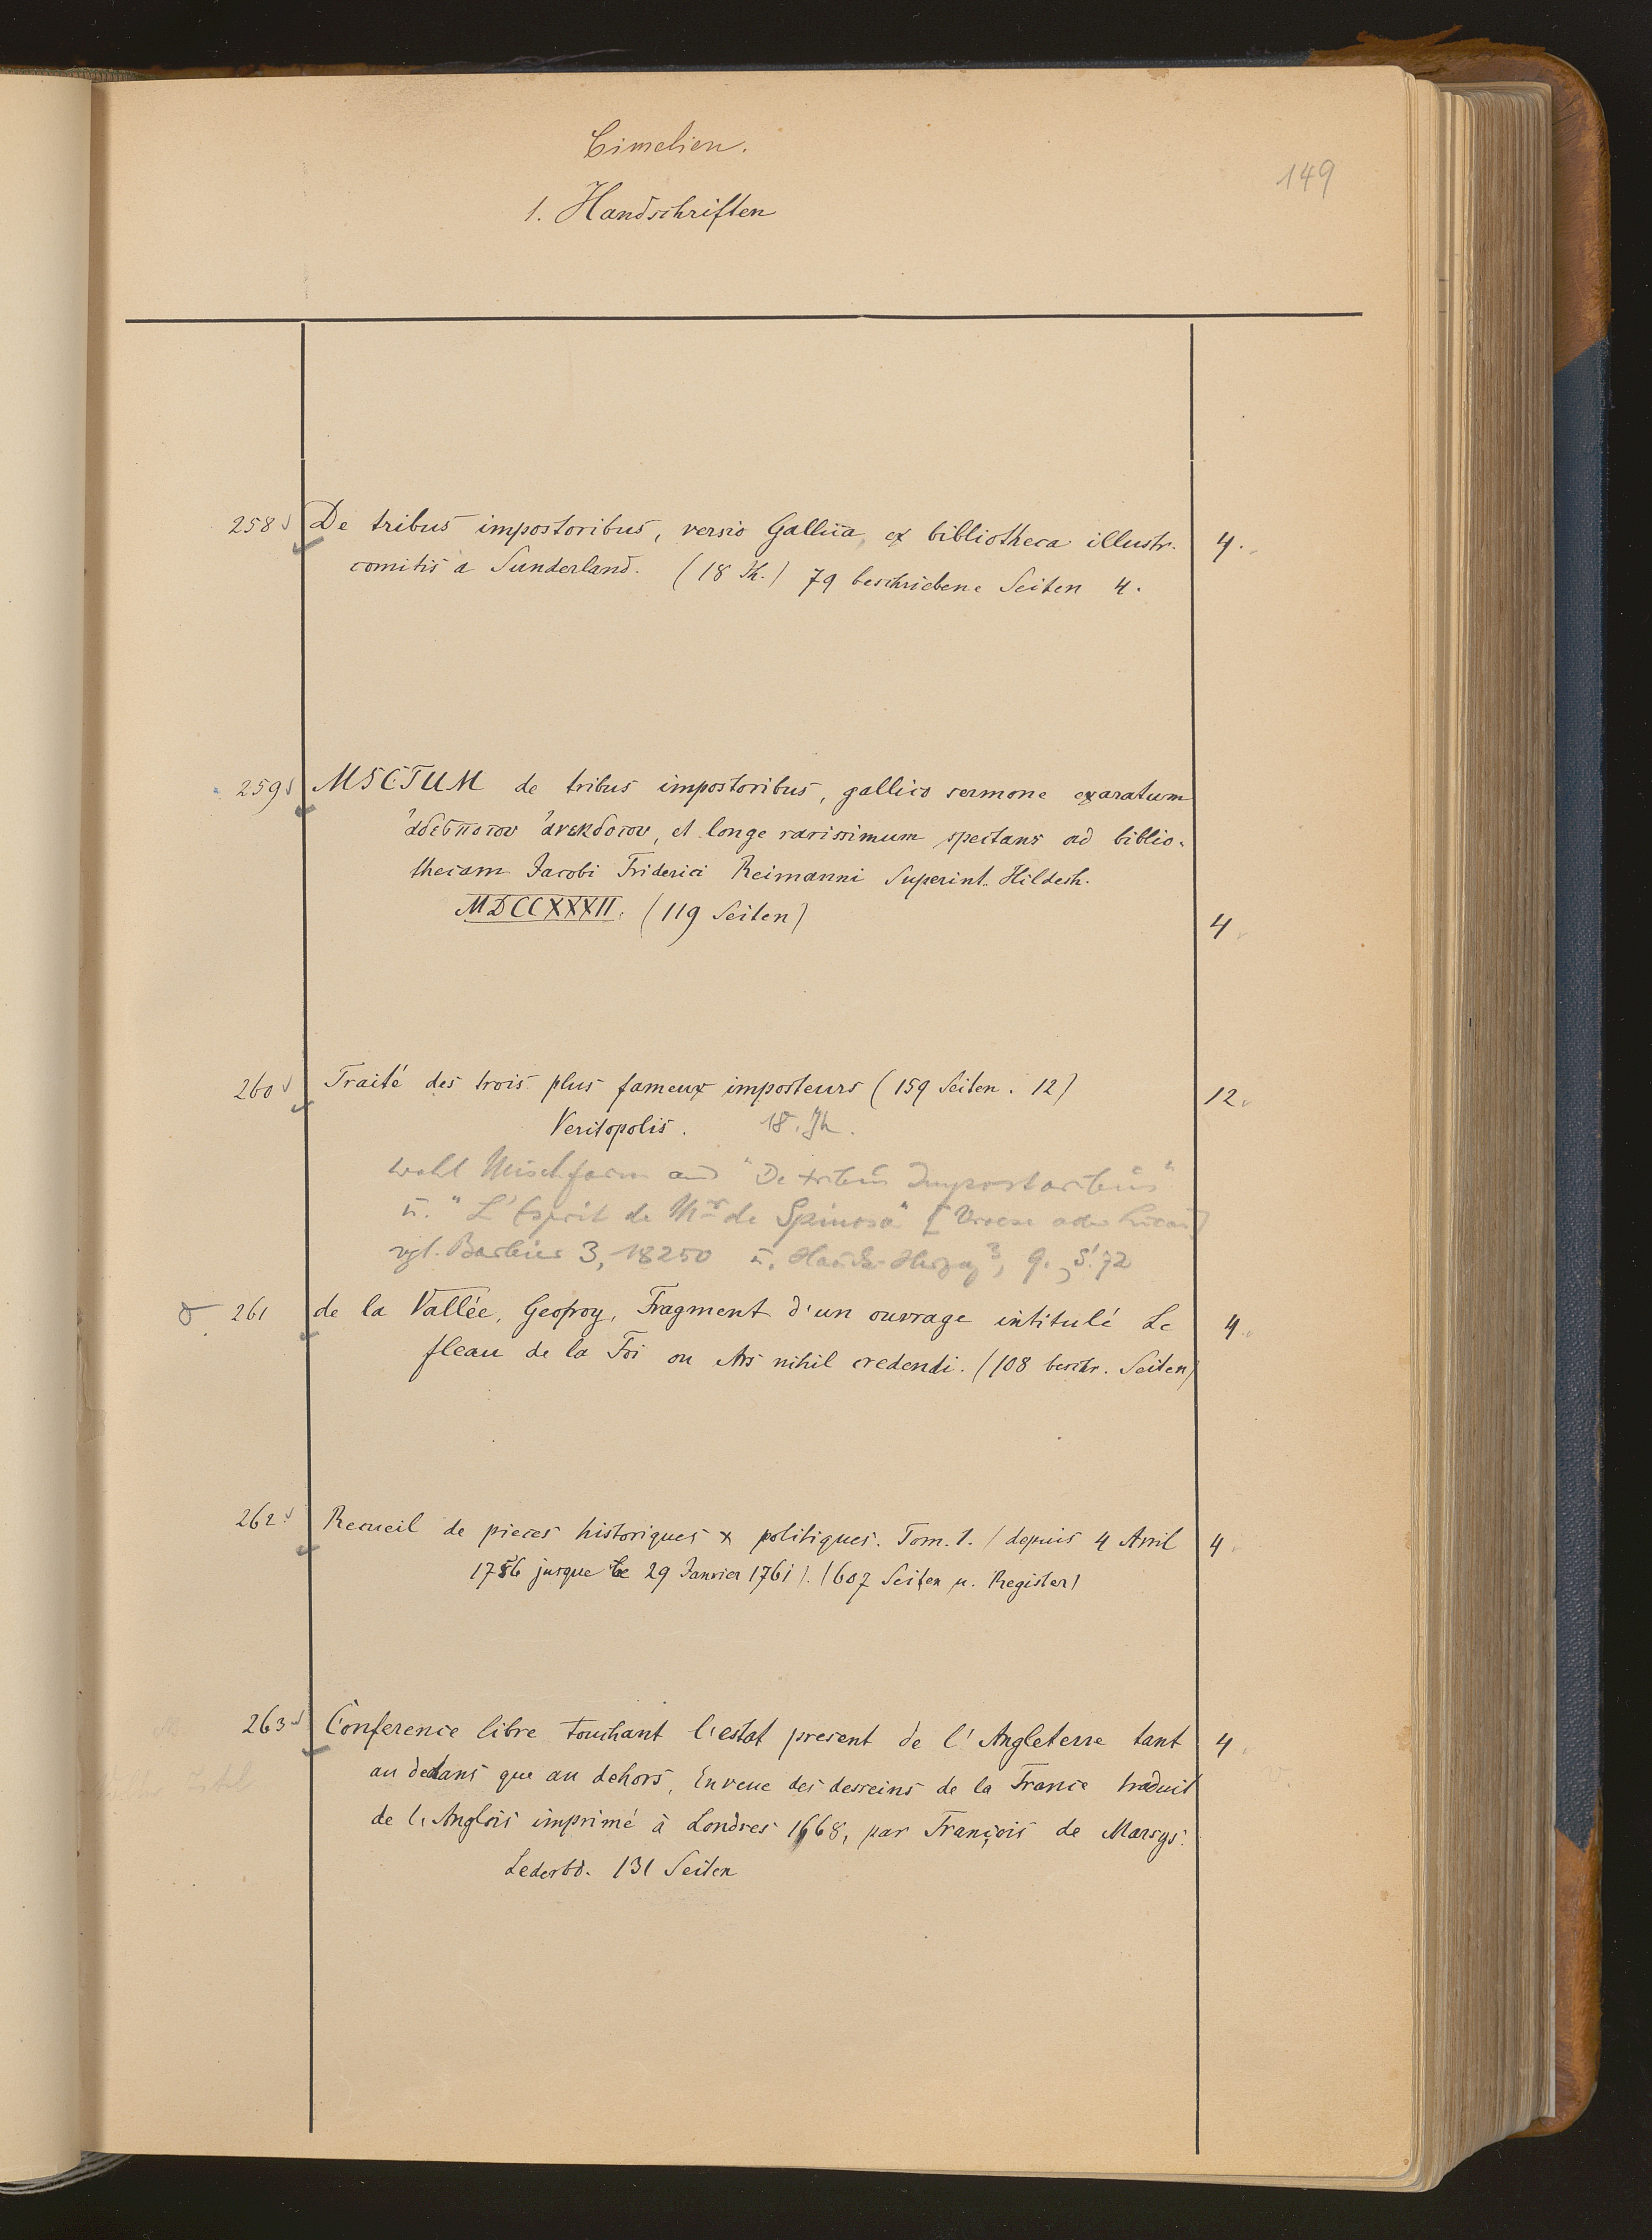 Cimelien.
149
1. Handschriften
258 De tribus impostoribus, versio Gallica, ex bibliotheca illustr. 4.
comitis a Sunderland. (18 Jh.) 79 beschriebene Seiten 4.
259 MSCTUM de tribus impostoribus, gallico sermone exaratum
ἀδεσποτον ἀνεκδοτον, et longe rarissimum spectans ad biblio-
thecam Jacobi Friderici Reimanni Superint. Hildesh.
MDCCXXXII. (119 Seiten) 4
260 Traité des trois plus fameux imposteurs (159 Seiten. 12) 12.
Veritopolis. 18. Jh.
wohl Mischform aus "De tribus Impostoribus"
u. "L'Esprit de Mr de Spinosa" [Vroese oder Lucas]
vgl. Barbier 3, 18250 u. 3, 9, S. 72
261 de la Vallée, Geofroy, Fragment d'un ouvrage intitulé Le 4.
fleau de la Foi ou Ars nihil credendi. (108 beschr. Seiten)
262 Recueil de pieces historiques & politiques. Tom. 1. (depuis 4 Avril 4
1756 jusque le 29 Janvier 1761). (607 Seiten u. Register)
263 Conference libre touchant l'estat present de l'Angleterre tant 4
au dedans que au dehors, En veue des desseins de la France traduit
de l'Anglois imprimé à Londres 1668, par François de Marsys.
Lederbd. 131 Seiten